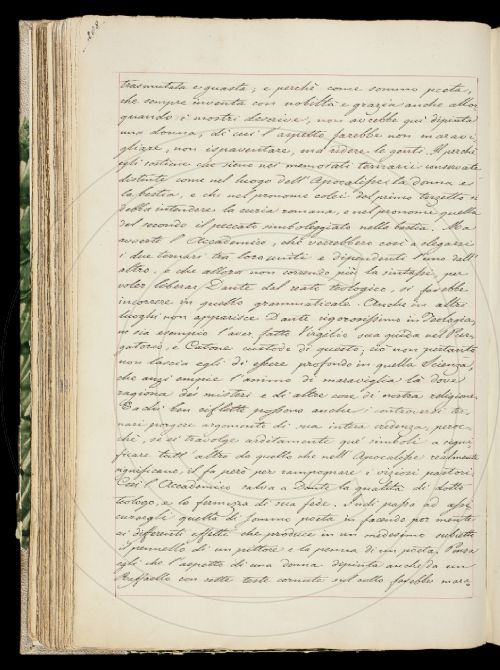 208.
trasmutata e guasta; e perchè come sommo poeta,
che sempre inventa con nobiltà e grazia anche allor
quando i mostri descrive, non avrebbe qui dipinta
una donna, di cui l'aspetto farebbe non maravi
gliare, non ispaventare, ma ridere le genti. Il perchè
egli sostiene che sieno nei memorati terzarii conservate
distinte come nel luogo dell'Apocalisse la donna e
la bestia, e che nel pronome colei del primo terzetto si
debba intendere la curia romana, e nel pronome quella
del secondo il peccato simboleggiato nella bestia. Ma
avverte l'Accademico, che verrebbero così a slegarsi
i due ternari tra loro uniti e dipendenti l'uno dall'
altro, e che allora non correndo più la sintassi, per
voler liberar Dante del reato teologico, si farebbe
incorrere in questo grammaticale. Anche in altri
luoghi non apparisce Dante rigorosissimo in Teologia,
ne sia esempio l'aver fatto Virgilio sua guida nel Pur
gatorio, e Catone custode di questo; ciò non pertanto
non lascia egli di essere profondo in quella Scienza,
che anzi empie l'animo di maraviglia là dove
ragiona dei misteri e di altre cose di nostra religione.
Da chi ben riflette possono anche i controversi ter
nari porgere argomento di sua intera credenza, peroc
chè, se si travolge arditamente que' simboli a signi
ficare tutt'altro da quello che nell'Apocalisse realmente
significano, il fa però per rampognare i viziosi pastori.
Così l'Accademico salva a Dante la qualità di dotto
teologo, e la fermezza di sua fede. Indi passa ad assi
curargli quella di sommo poeta in facendo por mente
ai differenti effetti che produce in un medesimo subietto
il pennello di un pittore e la penna di un poeta. Pensa
egli che l'aspetto di una donna dipinta anche da un
Raffaello con sette teste cornute sul collo farebbe mara